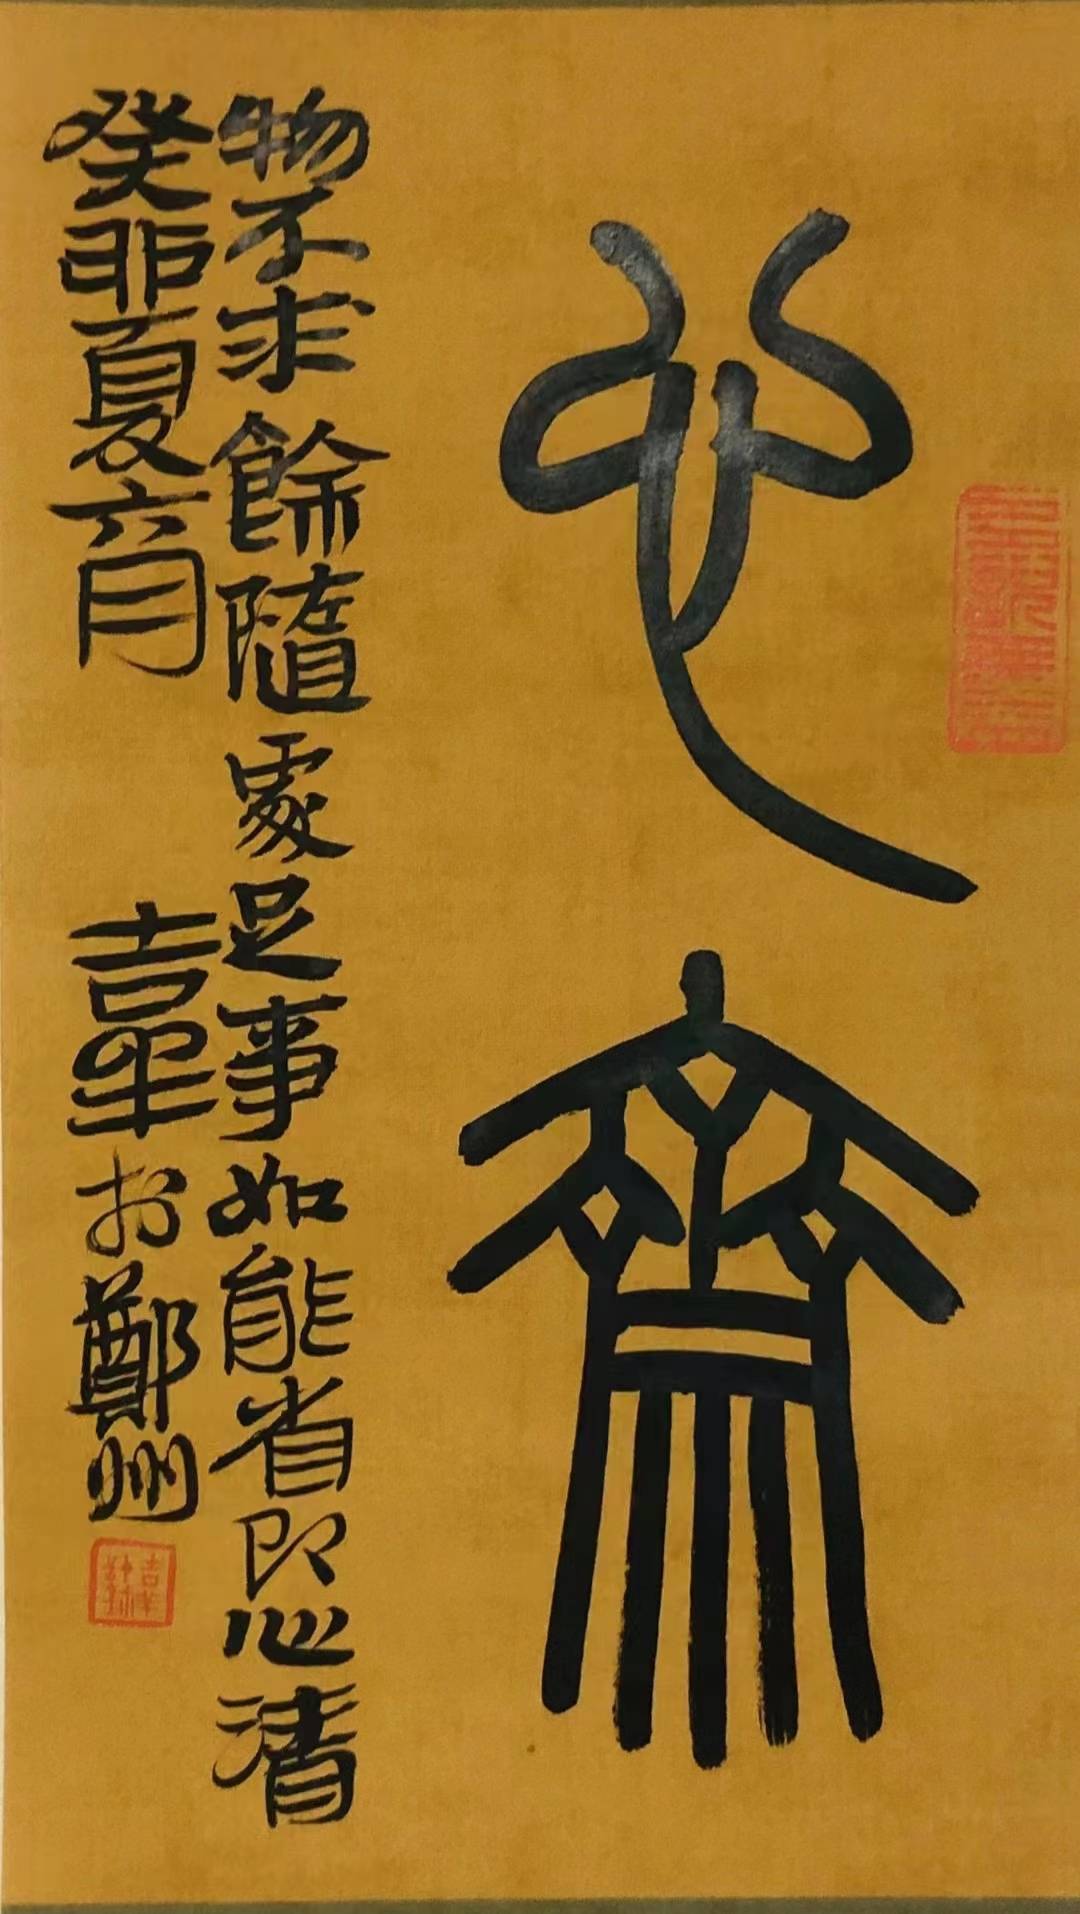 心齋
物不求餘隨處足事如能省即心清
癸卯夏六月 吉羊於鄭州